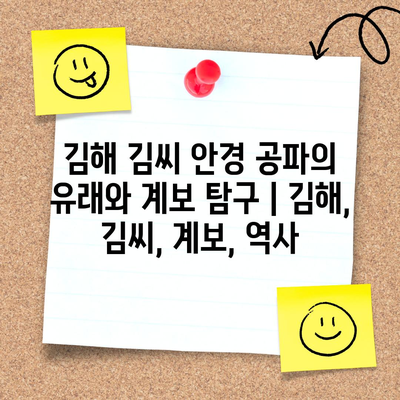 김해 김씨 안경 공파의
유래와 계보 탐구 | 김해,
김씨, 계보, 역사